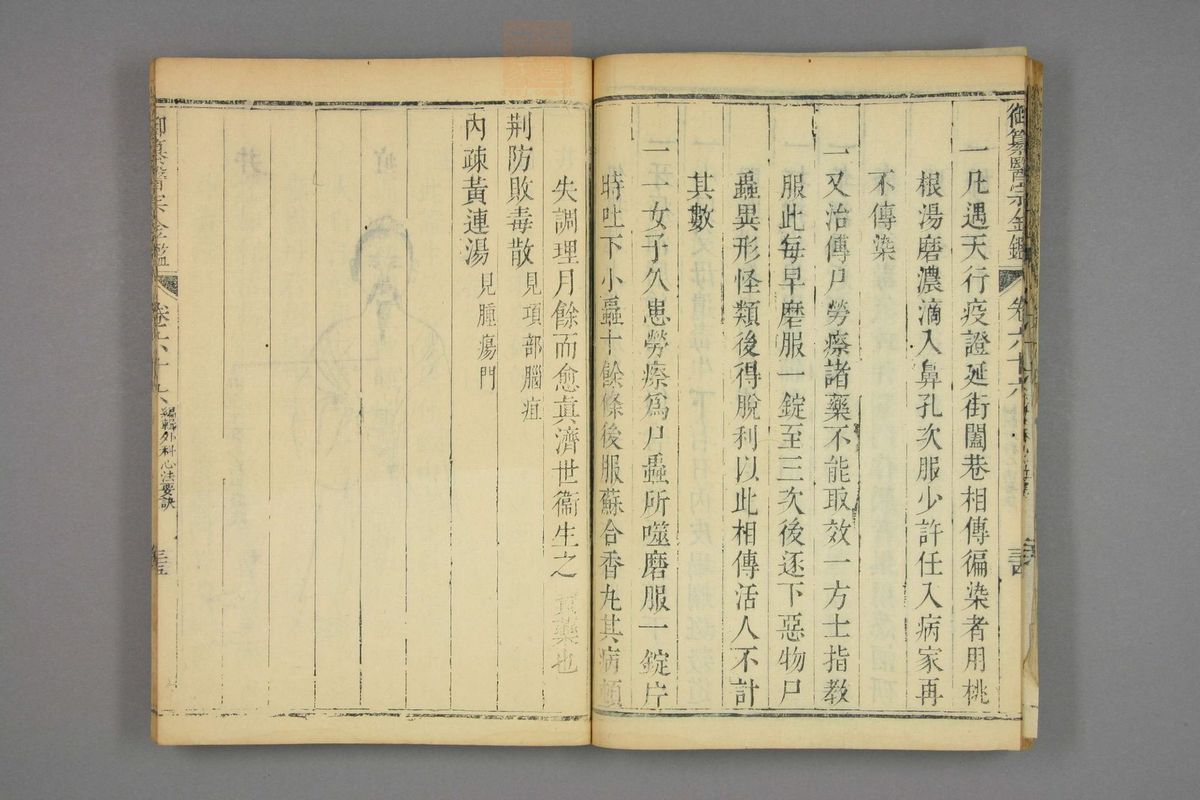 御纂醫宗金鑑 卷六十六
一凡遇天行疫證延街闔巷相傳徧染者用桃
根湯磨濃滴入鼻孔次服少許任入病家再
不傳染
一又治傳尸勞瘵諸藥不能取效一方士指教
服此每早磨服一錠至三次後逐下惡物尸
蟲異形怪類後得脫利以此相傳活人不計
其數
一一女子久患勞瘵爲尸蟲所噬磨服一錠片
時吐下小蟲十餘條後服蘇合香丸其病頓
失調理月餘而愈真濟世衞生之寶藥也
荆防敗毒散 見項部腦疽
內疎黃連湯 見腫瘍門
御纂醫宗金鑑 卷六十六 編輯外科心法要訣